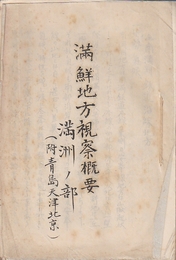 滿鮮地方視察概要
滿洲ノ部
（附青島天津北京）